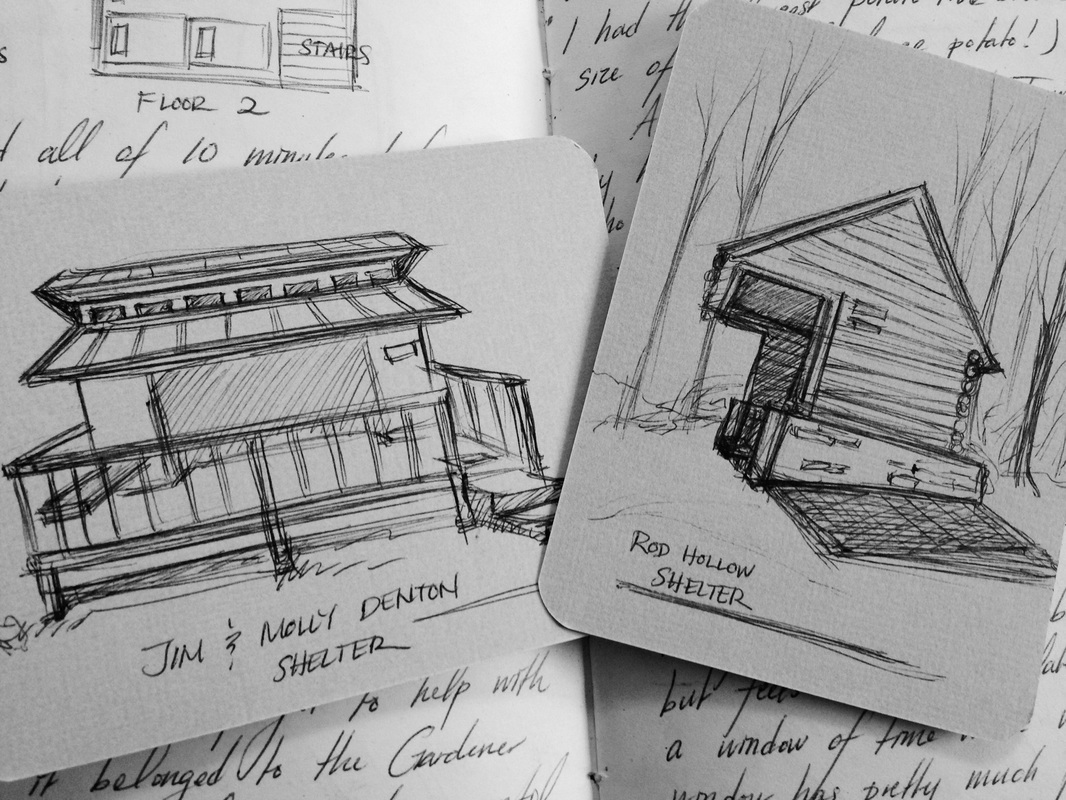 STAIRS
FLOOR 2
all of 10 minutes
I had the
potato!)
size of
JIM & MOLLY DENTON
SHELTER
ROD HOLLOW
SHELTER
to help with
it belonged to the Gardener
but feels
a window of time
window has pretty much